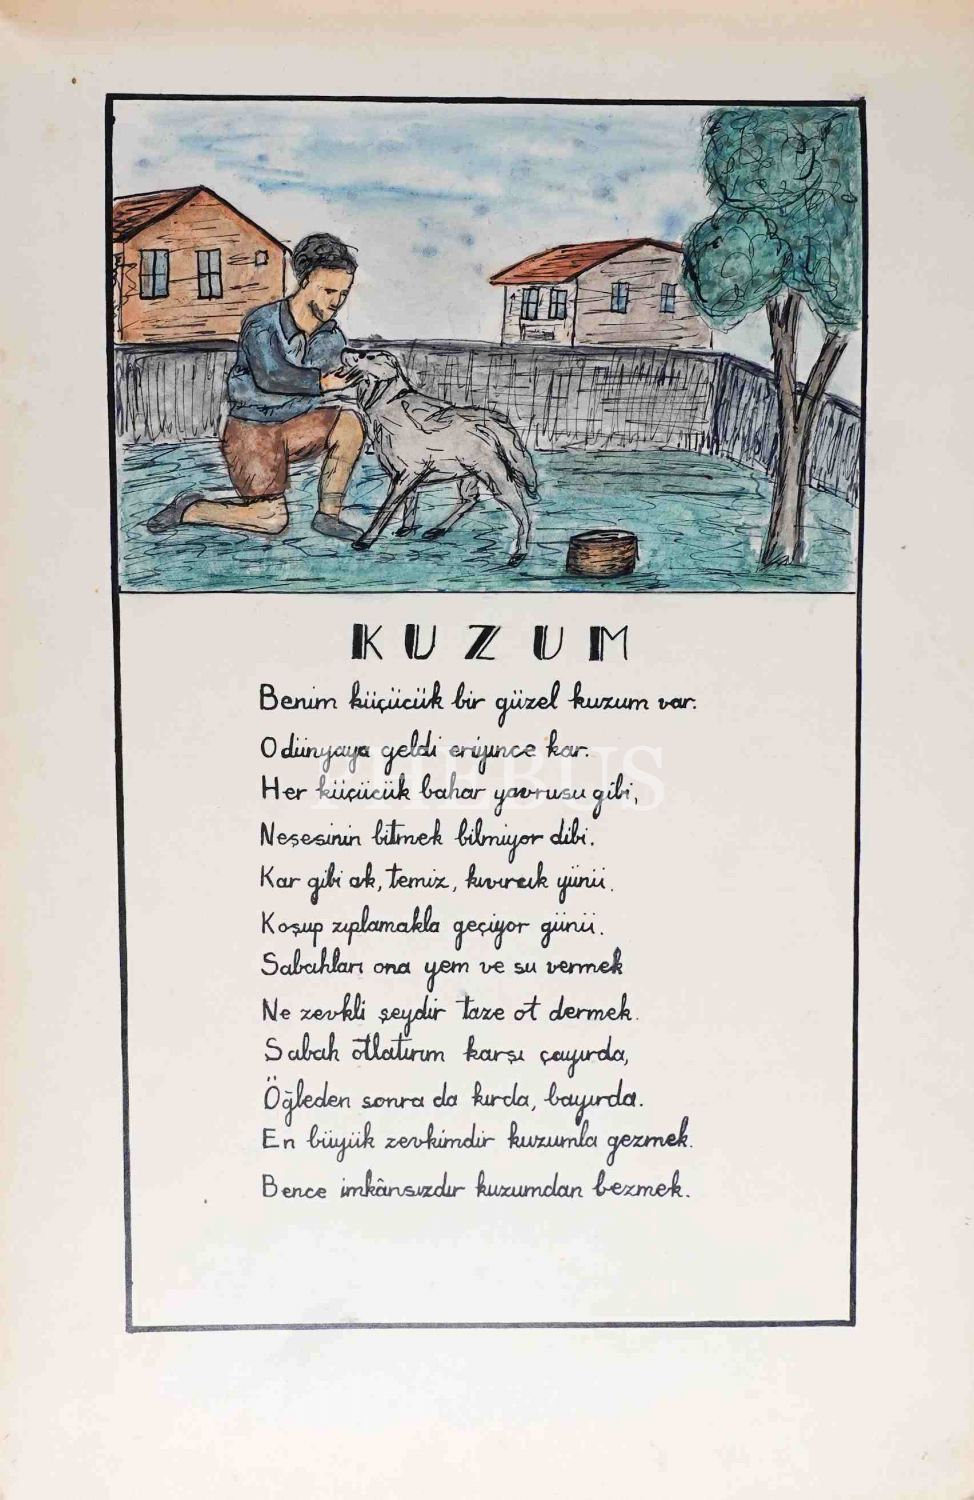 KUZUM
Benim küçücük bir güzel kuzum var.
O dünyaya geldi eriyince kar.
Her küçücük bahar yavrusu gibi,
Neşesinin bitmek bilmiyor dibi.
Kar gibi ak, temiz, kıvırcık yünü.
Koşup zıplamakla geçiyor günü.
Sabahları ona yem ve su vermek
Ne zevkli şeydir taze ot dermek.
Sabah otlatırım karşı çayırda,
Öğleden sonra da kırda, bayırda.
En büyük zevkimdir kuzumla gezmek.
Bence imkânsızdır kuzumdan bezmek.
PHEBUS